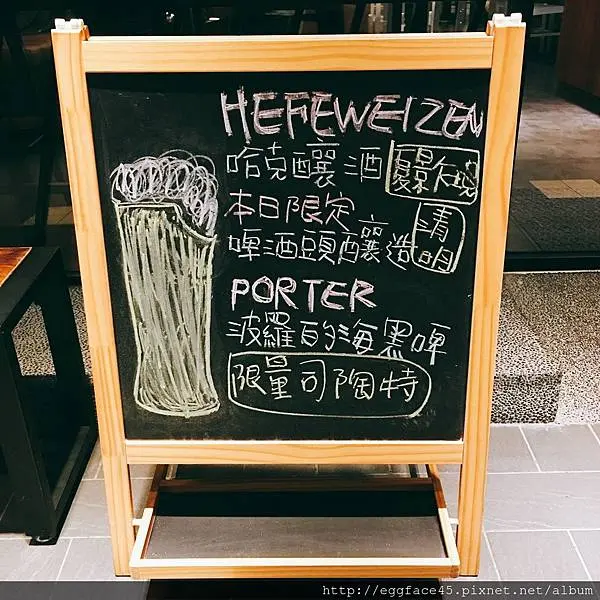 HEFEWEIZEN
哈克釀酒
本日限定
啤酒頭釀造 清明
PORTER
波羅的海黑啤
限量司陶特
http://eggface45.pixnet.net/album